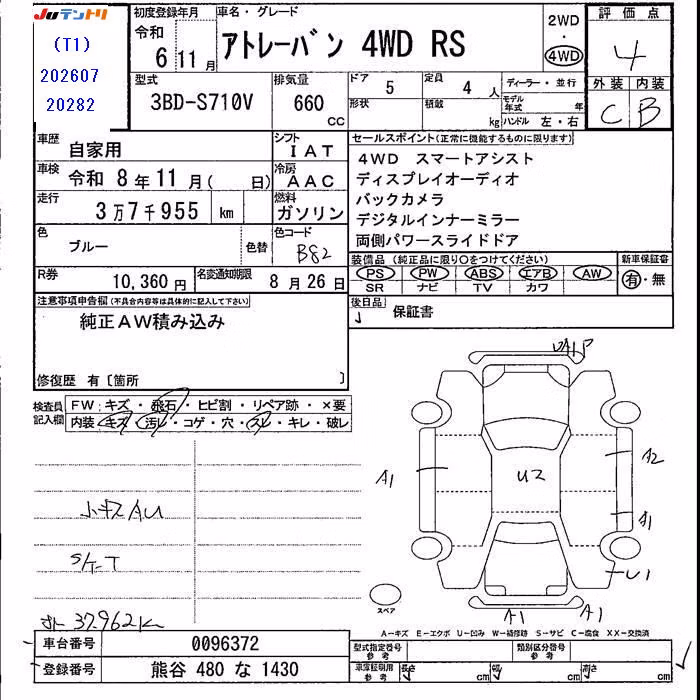 Juテントリ
(T1)
202607
20282
初度登録年月
令和
6年 11月
車名・グレード
アトレーバン 4WD RS
2WD
・
4WD
評価点
4
型式
3BD-S710V
排気量
660 cc
ドア 5
形状
定員 4 人
積載 kg
ディーラー・並行
モデル年式 年
ハンドル 左・右
外装 内装
C B
車歴
自家用
シフト
IAT
車検
令和 8年11月( 日)
冷房
AAC
走行
3万7千955 km
燃料
ガソリン
色
ブルー
色替
色コード
B82
R券
10,360円
名変通知期限
8月26日
セールスポイント(正常に機能するものに限ります)
4WD スマートアシスト
ディスプレイオーディオ
バックカメラ
デジタルインナーミラー
両側パワースライドドア
装備品(純正品に限り○をつけてください)
PS PW ABS エアB AW
SR ナビ TV カワ
新車保証書
有・無
後日品
保証書
注意事項申告欄(不具合内容等は具体的に記入して下さい)
純正AW積み込み
修復歴 有〔箇所 〕
検査員記入欄
FW:キズ・飛石・ヒビ割・リペア跡・×要
内装:キズ・汚レ・コゲ・穴・スレ・キレ・破レ
小キズAU
S/T-T
37.962k
A1
U2
A2
A1
U1
A1
A1
スペア
A−キズ E−エクボ U−凹み W−補修跡 S−サビ C−腐食 XX−交換済
車台番号
0096372
登録番号
熊谷 480 な 1430
型式指定番号
参考
類別区分番号
参考
車庫証明用
参考
長さ cm
幅 cm
高さ cm